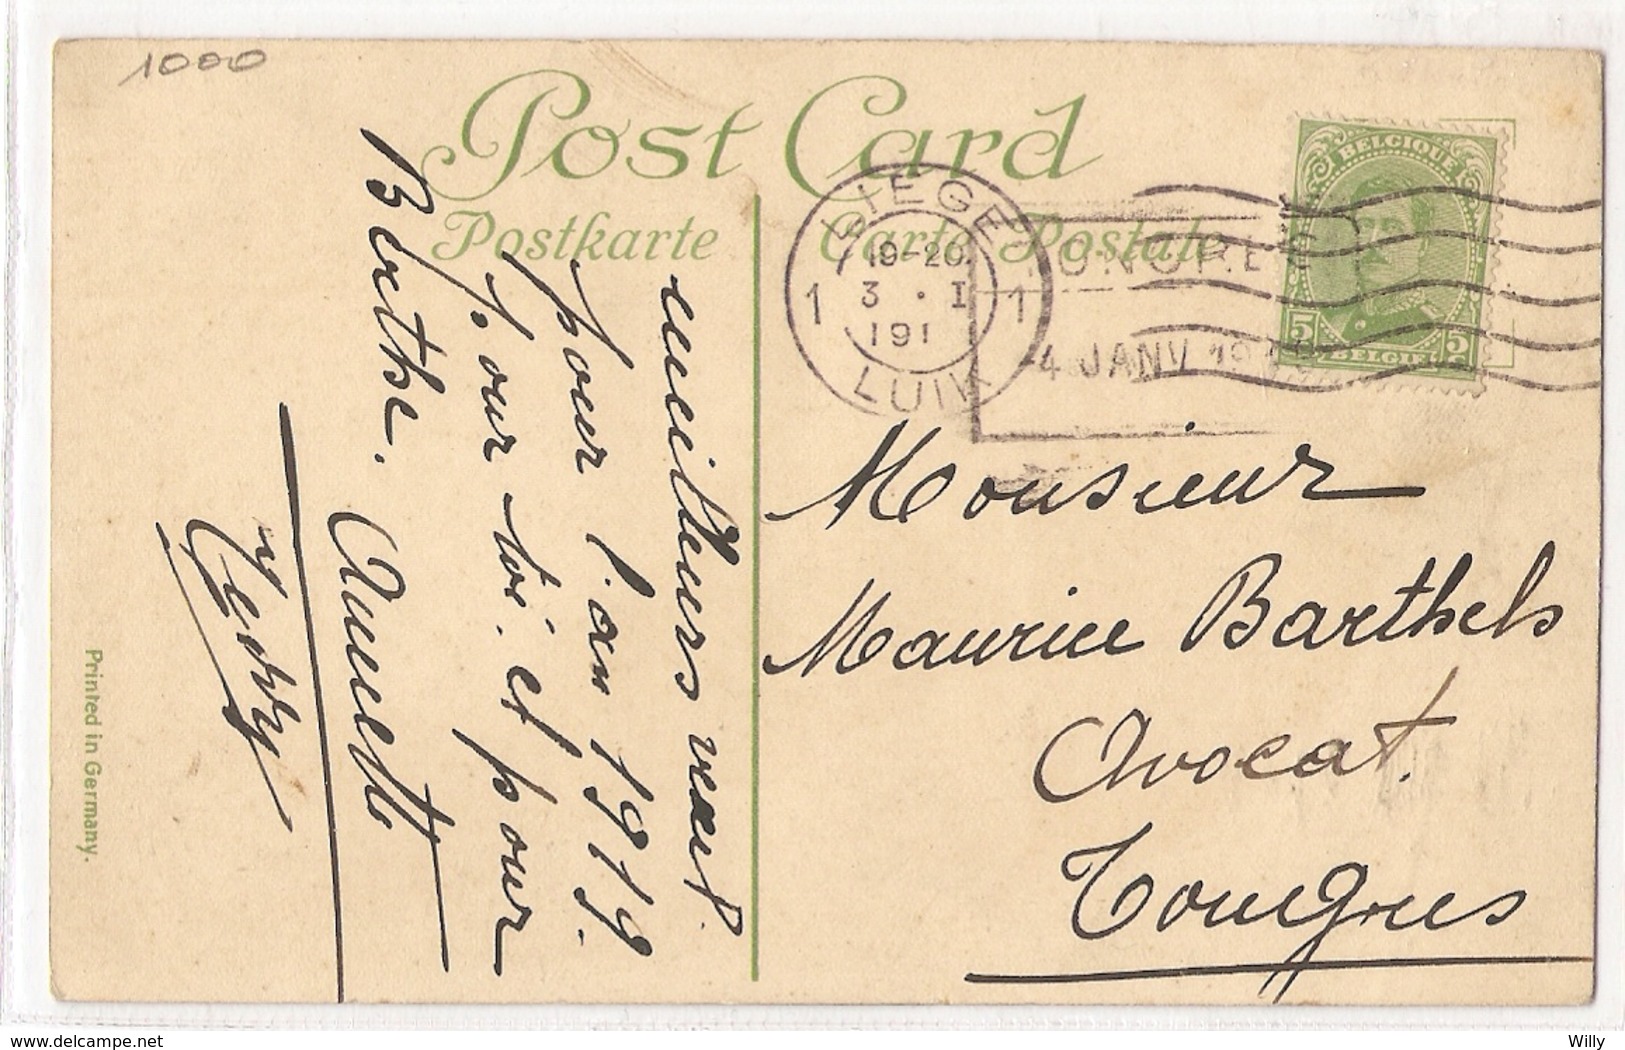 1000
Post Card
Postkarte Carte Postale
BELGIQUE
5 5
BELGIË
LIEGE
19-20
1 3 . I 1
191
LUIK
TONGRES
-4 JANV 19
meilleurs vœux
pour l'an 1919.
pour toi et pour
Berthe.
Monsieur
Maurice Barthels
Avocat
Tongres
Printed in Germany.
www.delcampe.net
Willy